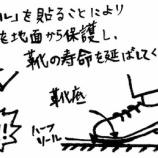 ル」を貼ることにより
を地面から保護し、
靴の寿命を延ばしてく
靴底
ハーフ
ソール